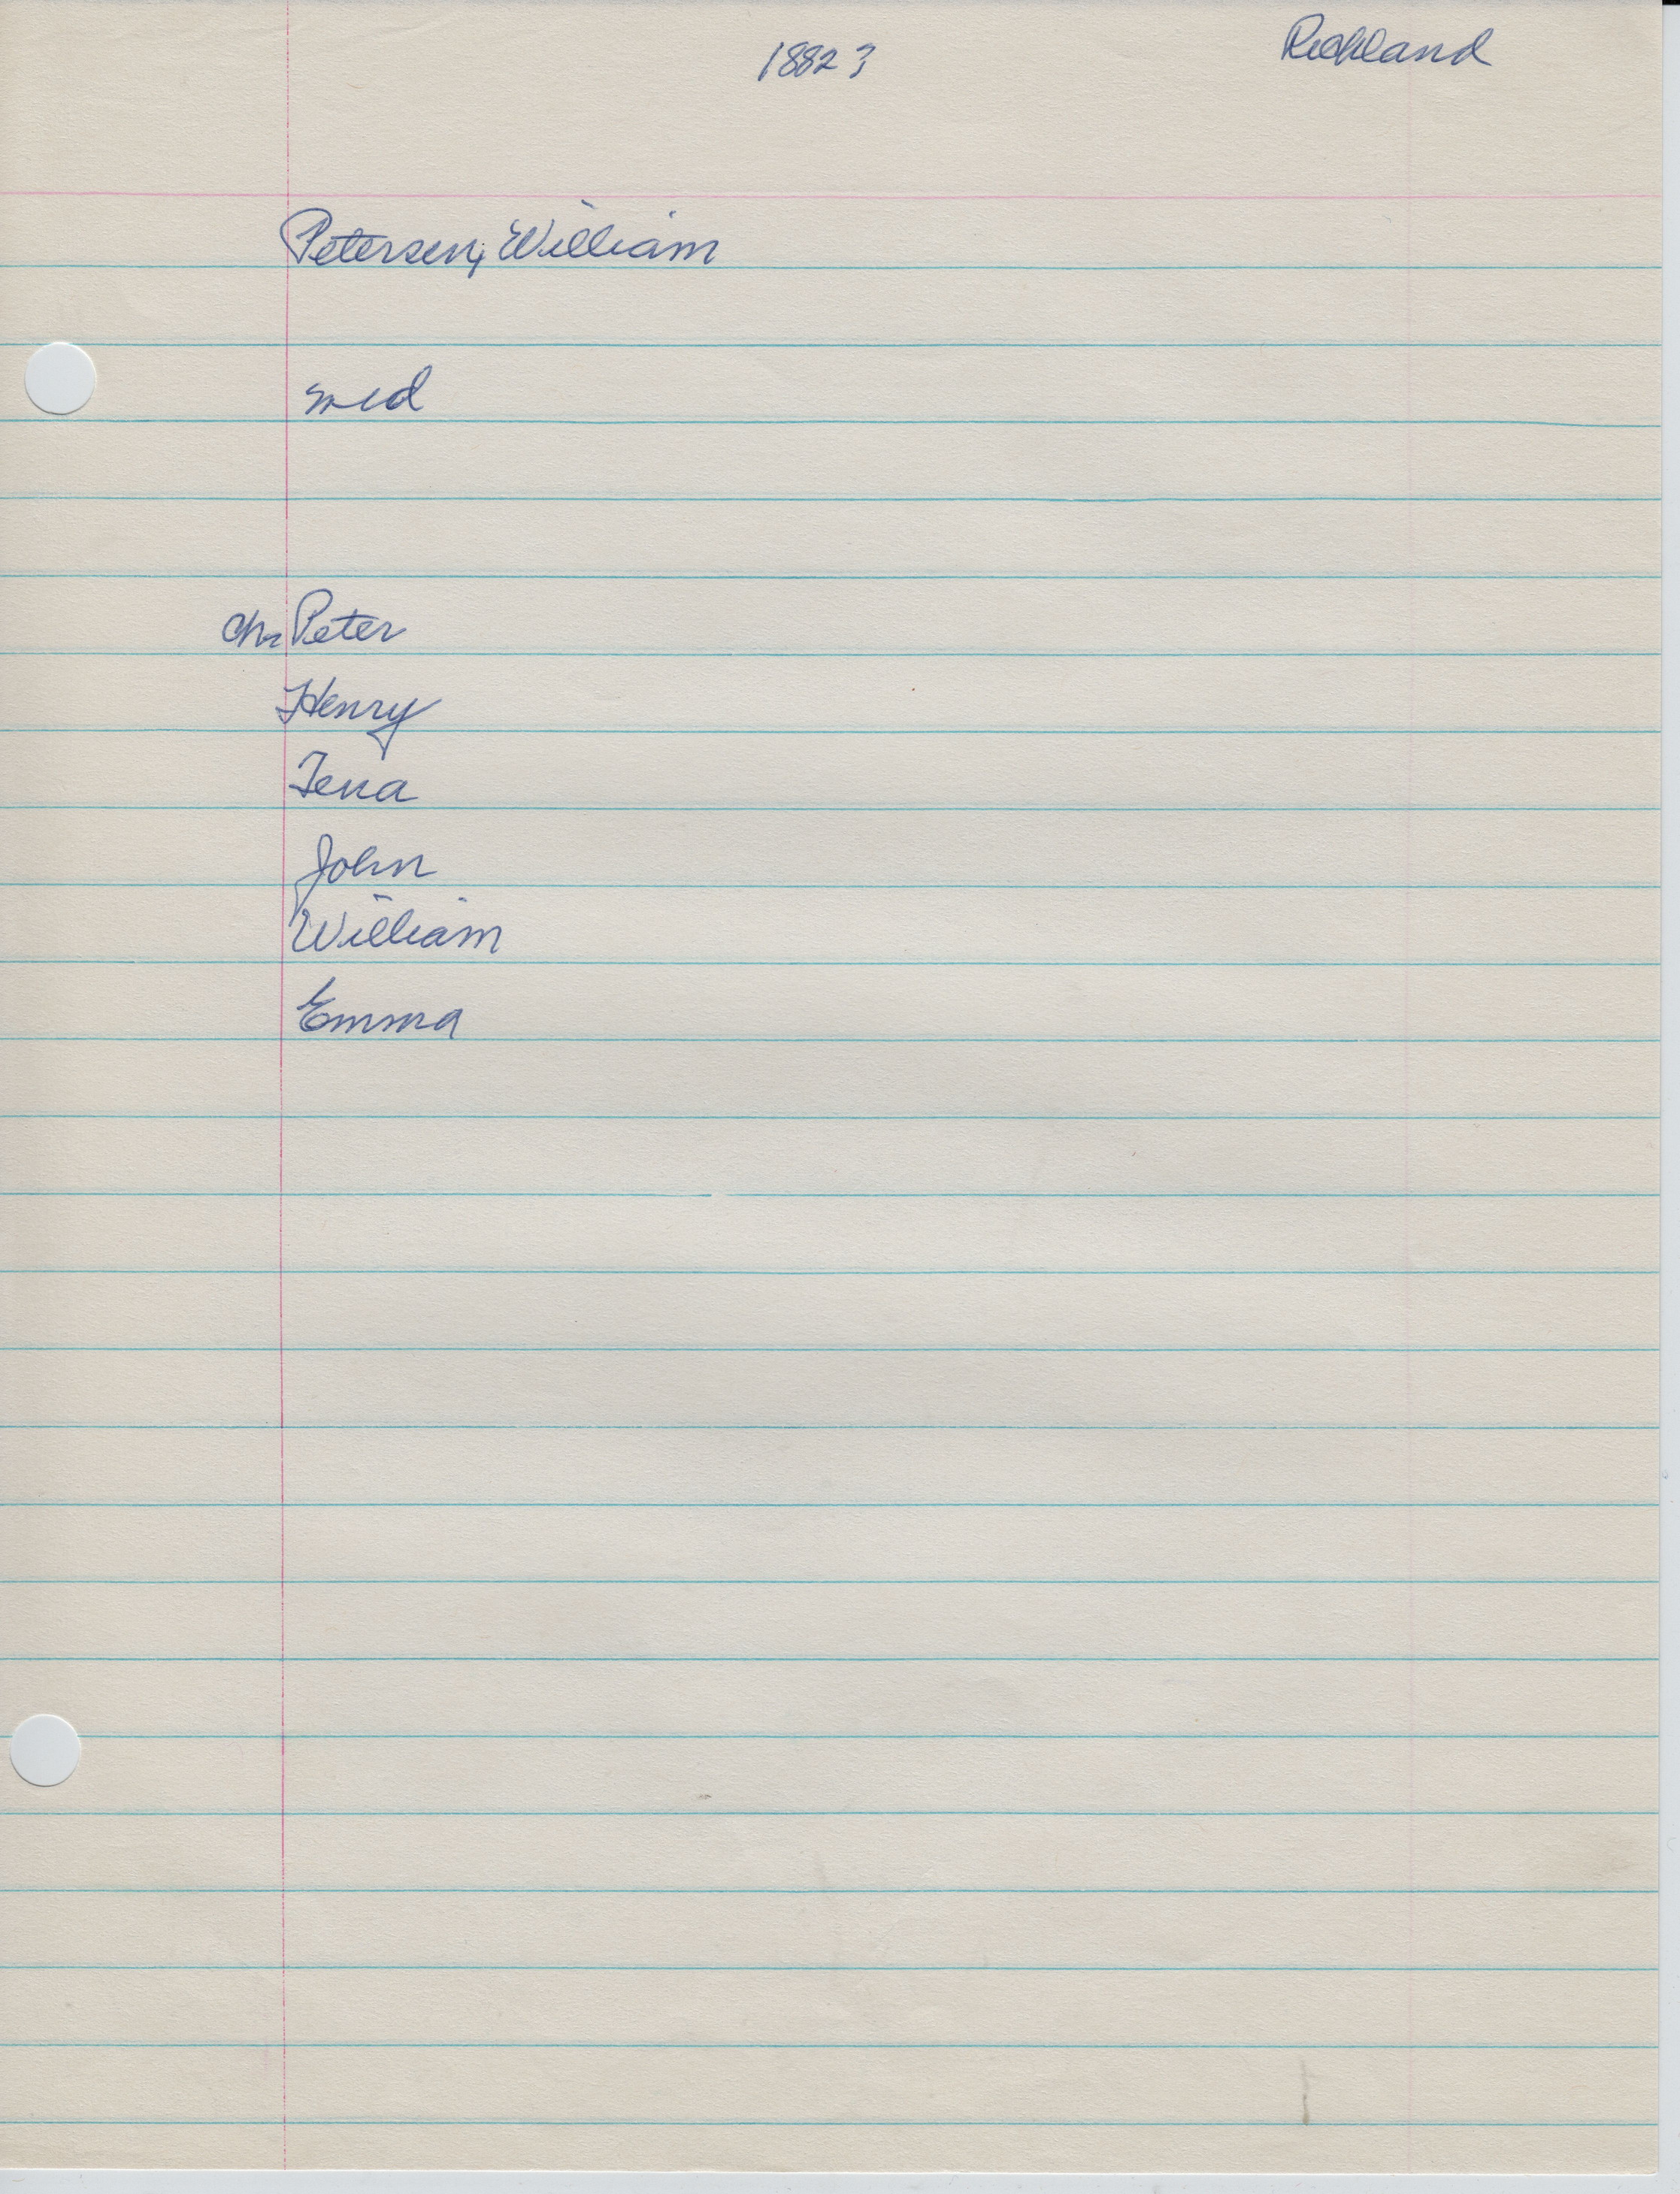 1882 ? Richland
Petersen, William
md
Ch. Peter
Henry
Tena
John
William
Emma